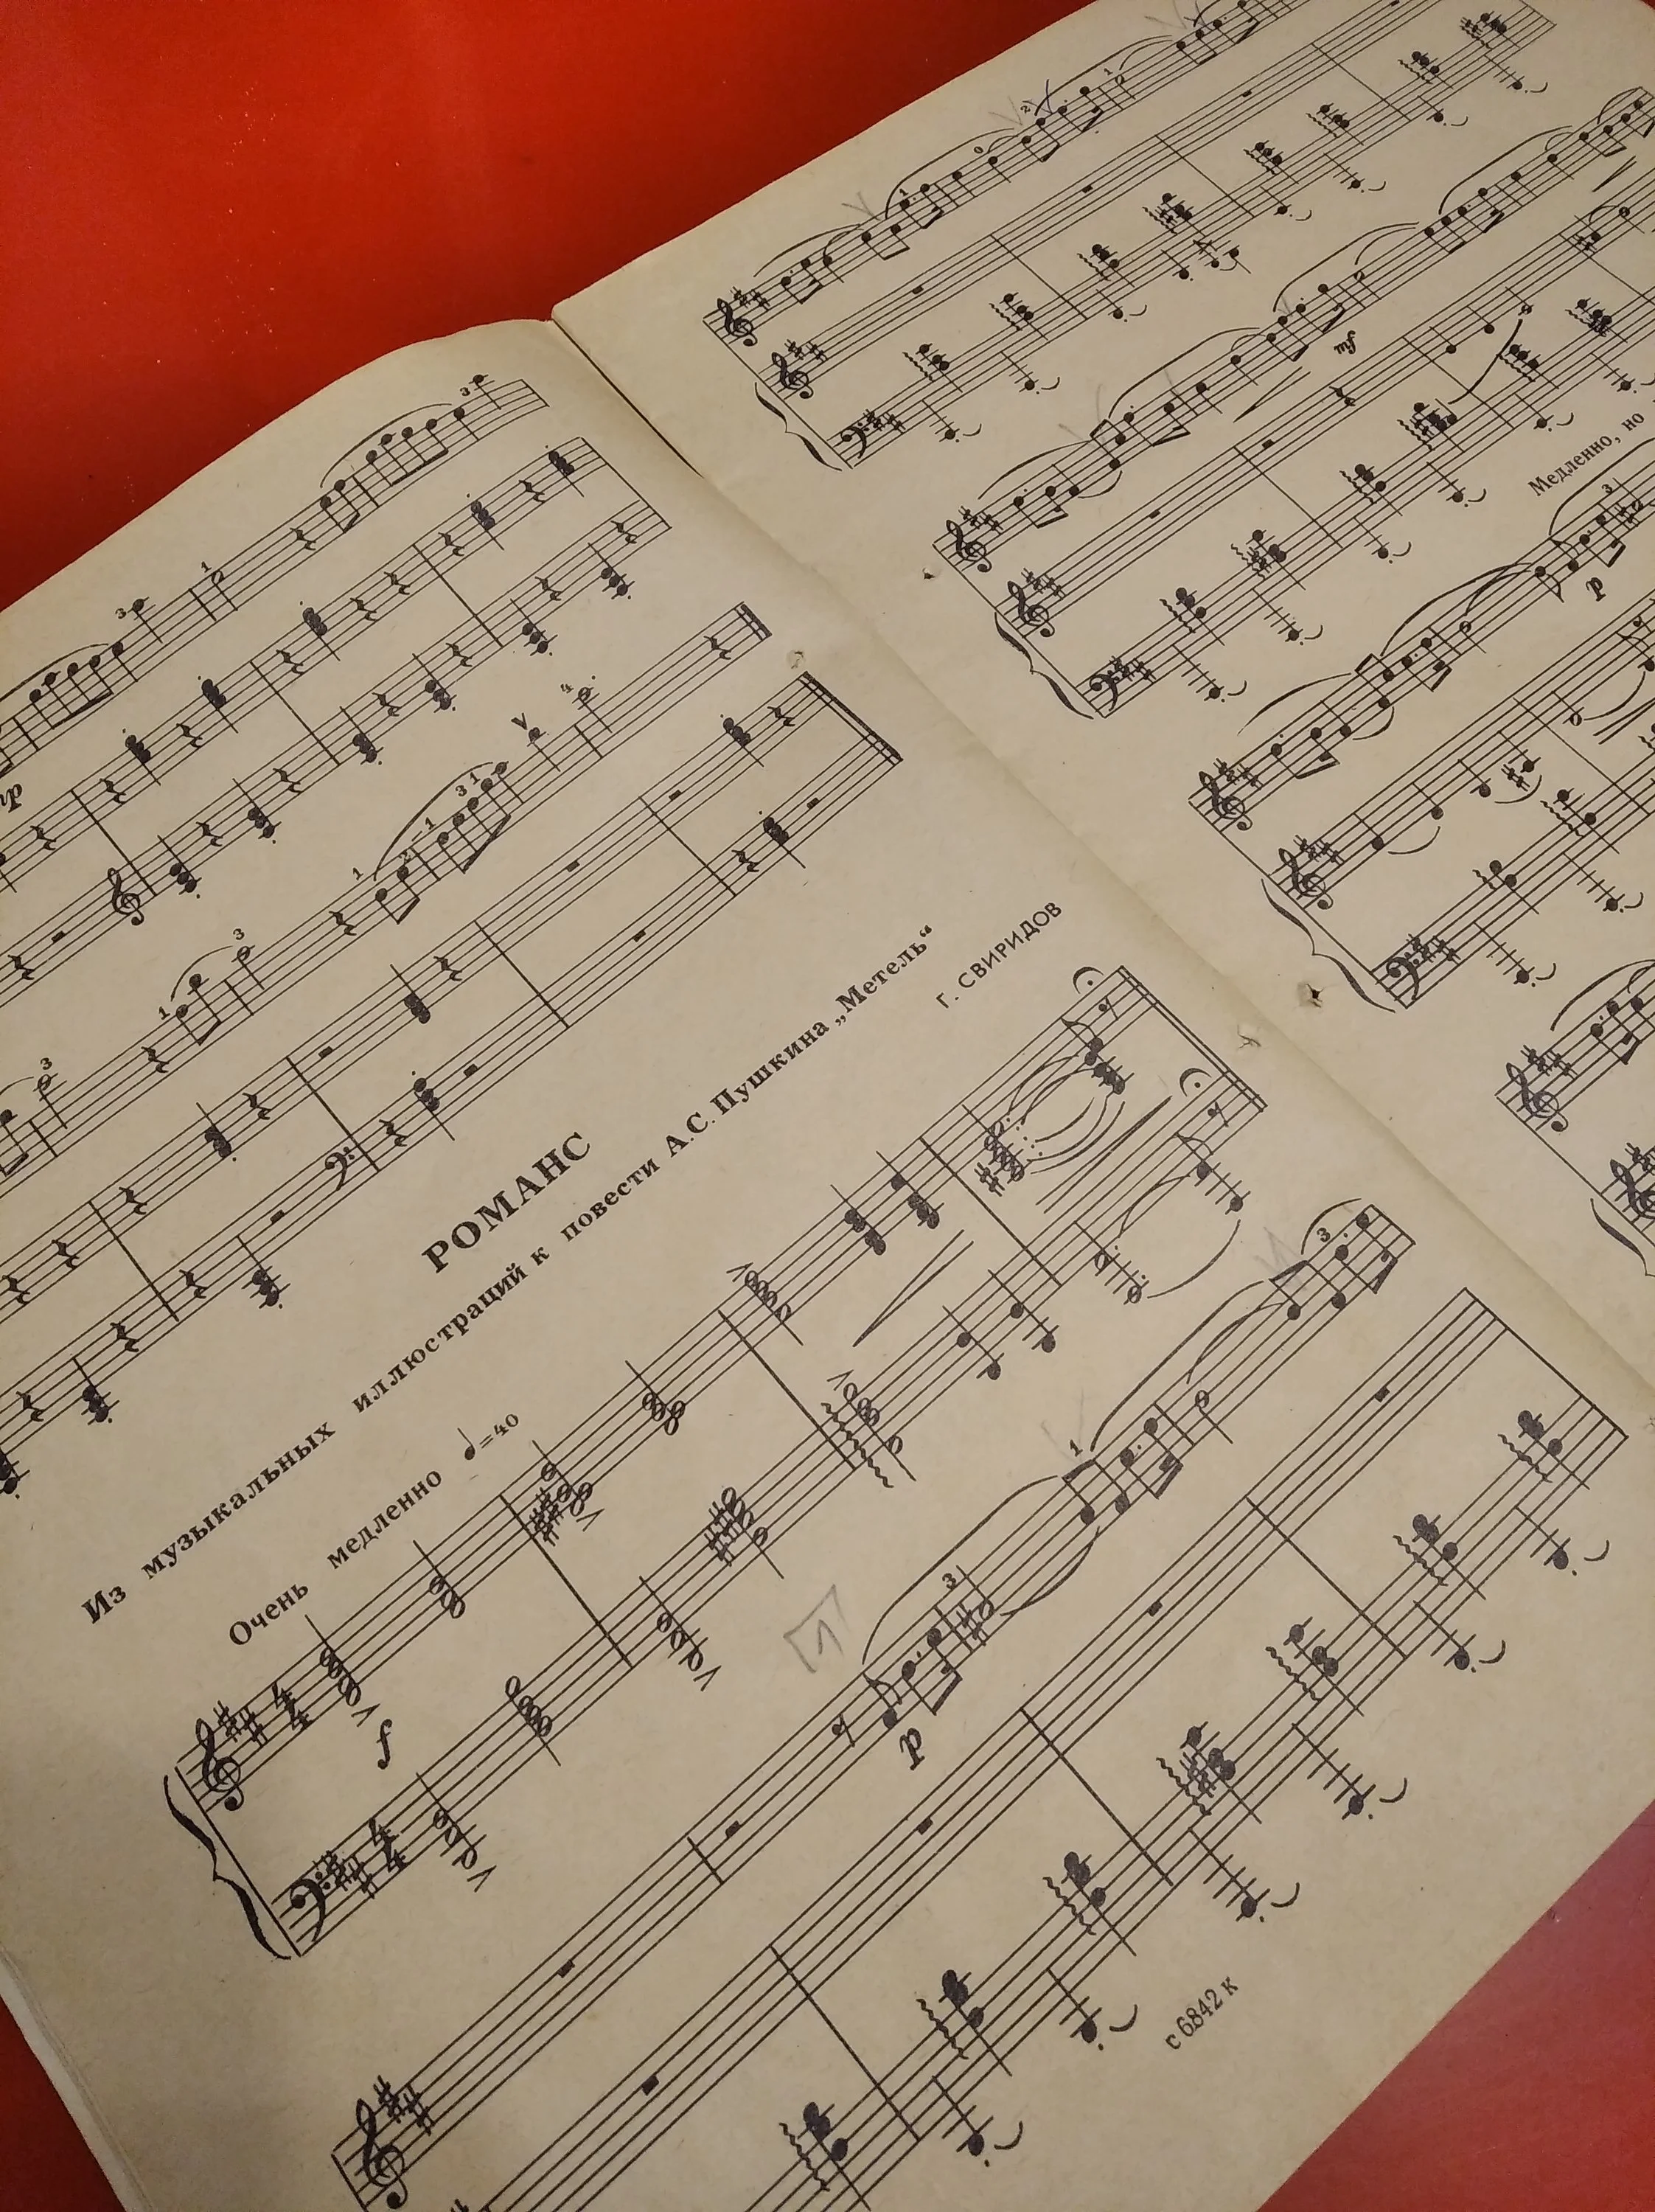 РОМАНС
Из музыкальных иллюстраций к повести А.С.Пушкина „Метель“
Г. СВИРИДОВ
Очень медленно ♩=40
f
p
1
с 6842 к
Медленно, но
p